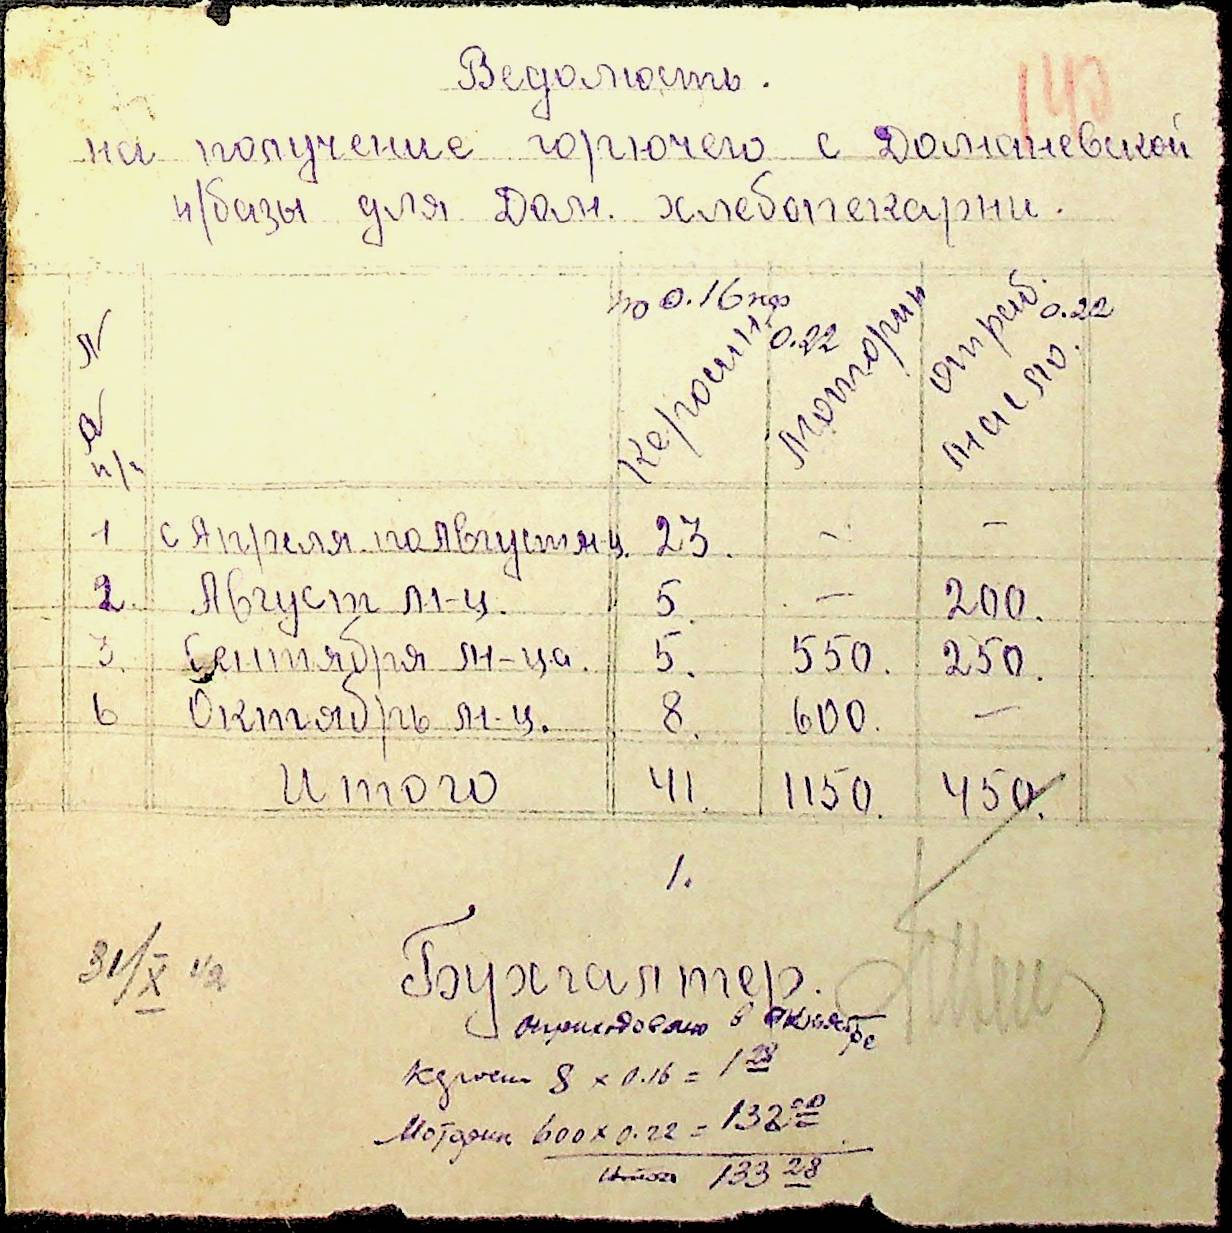 143
Ведомость.
на получение горючего с Доманевской
н/базы для Дом. хлебопекарни.
№ № п/п
по 0.16 пф
Керосин
0.22
Моторин
отраб. масло.
0.22
1 с Апреля по Август м-ц. 23. – –
2. Август м-ц. 5. – 200.
3. Сентября м-ца. 5. 550. 250.
6 Октябрь м-ц. 8. 600. –
Итого 41. 1150. 450.
1.
31/X 42
Бухгалтер.
оприходовано в октябре
Керосин 8 × 0.16 = 1 28
Моторин 600 × 0.22 = 132 00
Итого 133 28